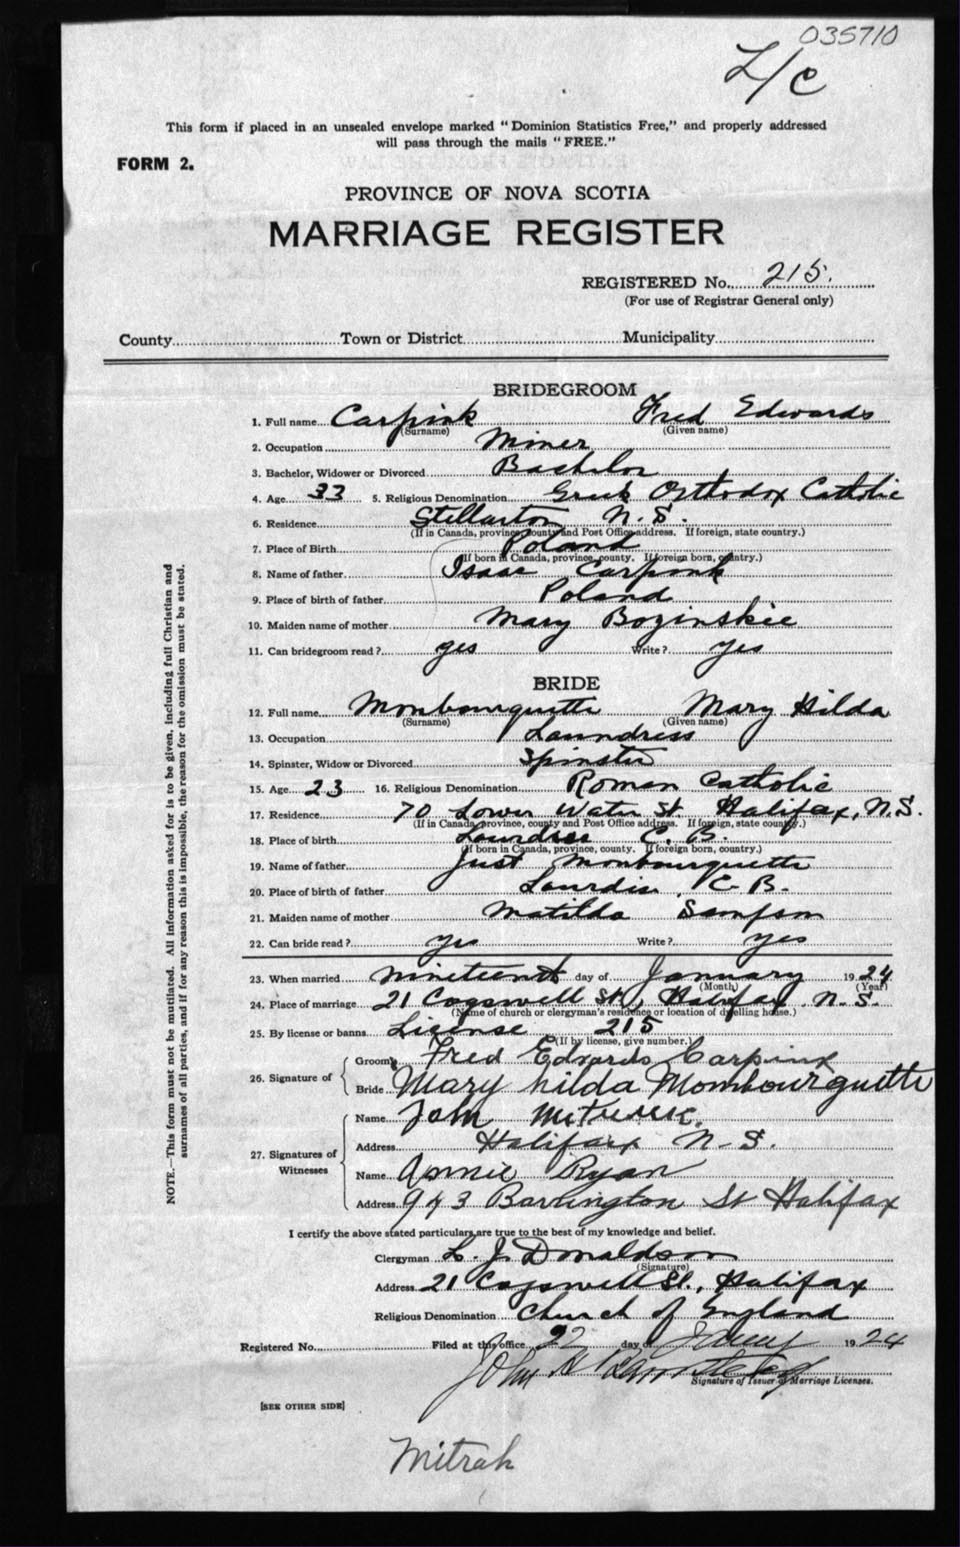 035710
L/C
This form if placed in an unsealed envelope marked "Dominion Statistics Free," and properly addressed
will pass through the mails "FREE."
FORM 2.
PROVINCE OF NOVA SCOTIA
MARRIAGE REGISTER
REGISTERED No. 215.
(For use of Registrar General only)
County Town or District Municipality
BRIDEGROOM
1. Full name Carpink Fred Edwards
(Surname) (Given name)
2. Occupation Miner
3. Bachelor, Widower or Divorced Bachelor
4. Age 33 5. Religious Denomination Greek Orthodox Catholic
6. Residence Stellarton N.S.
(If in Canada, province, county and Post Office address. If foreign, state country.)
7. Place of Birth Poland
(If born in Canada, province, county. If foreign born, country.)
8. Name of father Isaac Carpink
9. Place of birth of father Poland
10. Maiden name of mother Mary Bozinskie
11. Can bridegroom read? yes Write? yes
BRIDE
12. Full name Monbourquette Mary Hilda
(Surname) (Given name)
13. Occupation Laundress
14. Spinster, Widow or Divorced Spinster
15. Age 23 16. Religious Denomination Roman Catholic
17. Residence 70 Lower Water St. Halifax, N.S.
(If in Canada, province, county and Post Office address. If foreign, state country.)
18. Place of birth Lourdes C.B.
(If born in Canada, province, county. If foreign born, country.)
19. Name of father Just Monbourquette
20. Place of birth of father Lourdis, C.B.
21. Maiden name of mother Matilda Sampson
22. Can bride read? yes Write? yes
23. When married nineteenth day of January 1924
(Month) (Year)
24. Place of marriage 21 Cogswell St., Halifax, N.S.
(Name of church or clergyman's residence or location of dwelling house.)
25. By license or banns License 215
(If by license, give number.)
26. Signature of
Groom Fred Edwards Carpink
Bride Mary hilda Mombourquette
27. Signatures of Witnesses
Name John
Address Halifax N.S.
Name Annie Ryan
Address 943 Barrington St Halifax
I certify the above stated particulars are true to the best of my knowledge and belief.
Clergyman L. J. Donaldson
(Signature)
Address 21 Cogswell St., Halifax
Religious Denomination Church of England
Registered No. Filed at this office 22 day of Jany 1924
John
Signature of Issuer of Marriage Licenses.
[SEE OTHER SIDE]
Mitrah
NOTE.—This form must not be mutilated. All information asked for is to be given, including full Christian and
surnames of all parties, and if for any reason this is impossible, the reason for the omission must be stated.